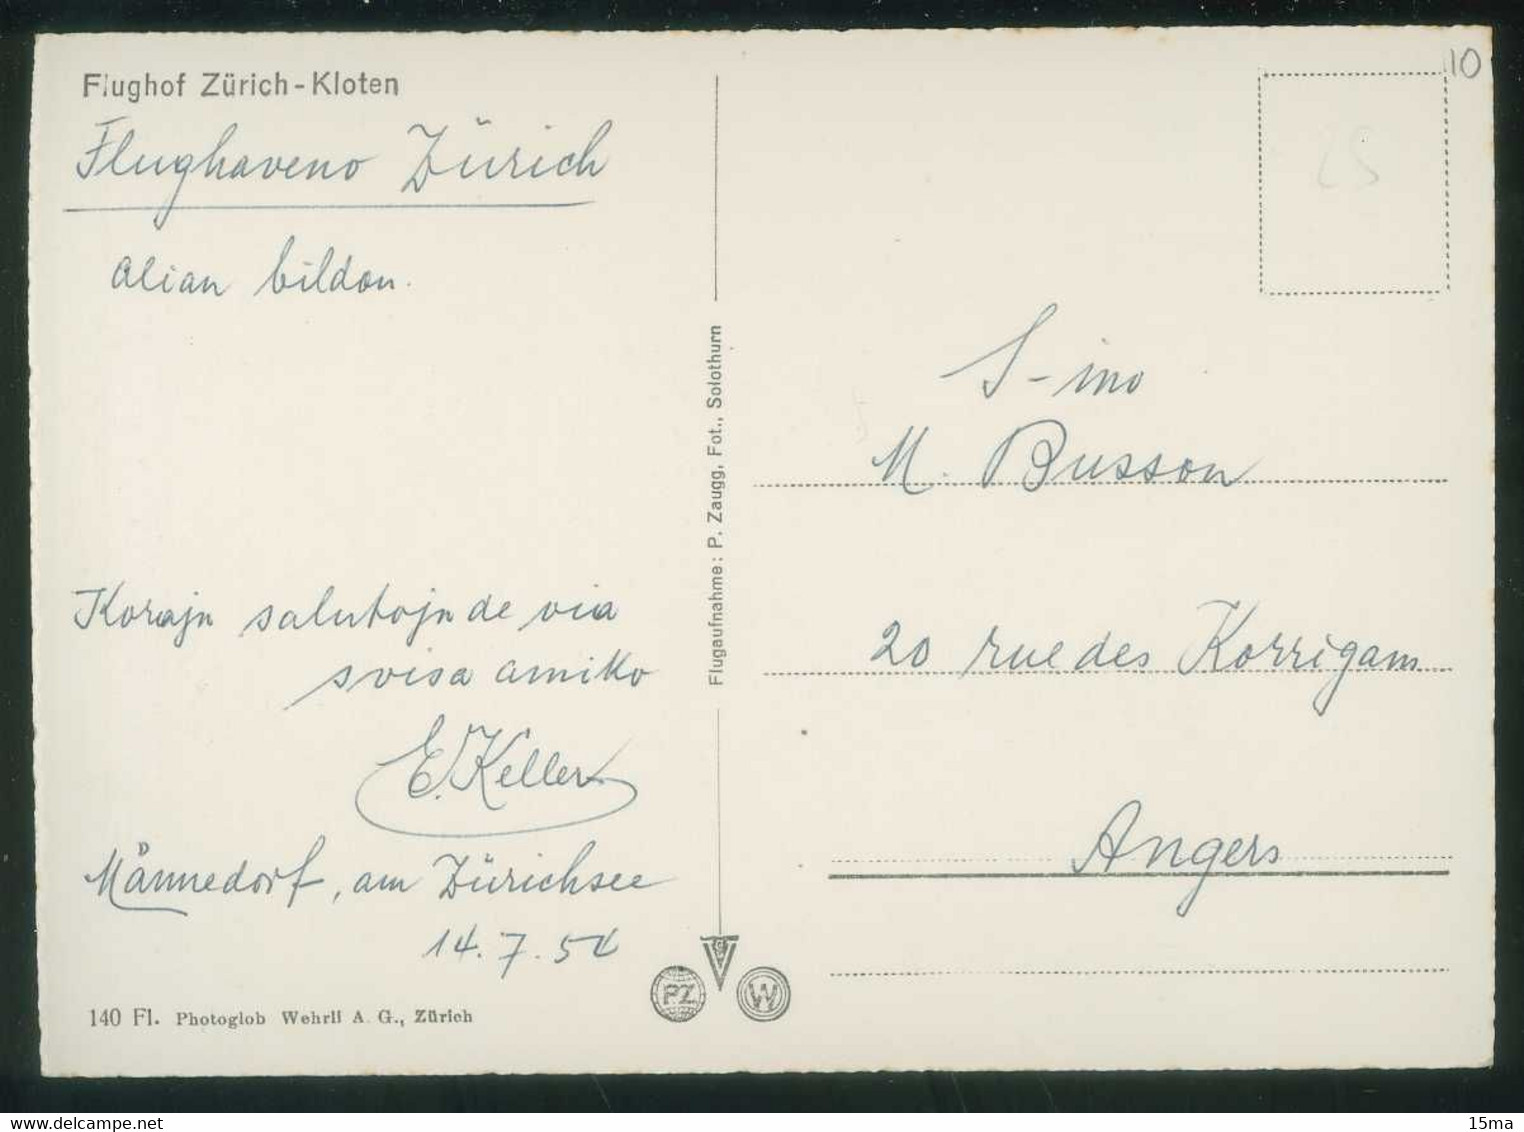 Flughof Zürich-Kloten
Flughaveno Zürich
alian bildon.
Korajn salutojn de via
svisa amiko
E. Keller
Männedorf, am Zürichsee
14. 7. 54
140 Fl. Photoglob Wehrli A. G., Zürich
Flugaufnahme: P. Zaugg, Fot., Solothurn
PZ
W
10
25
S-ino
M. Busson
20 rue des Korrigans
Angers
delcampe.net
15ma